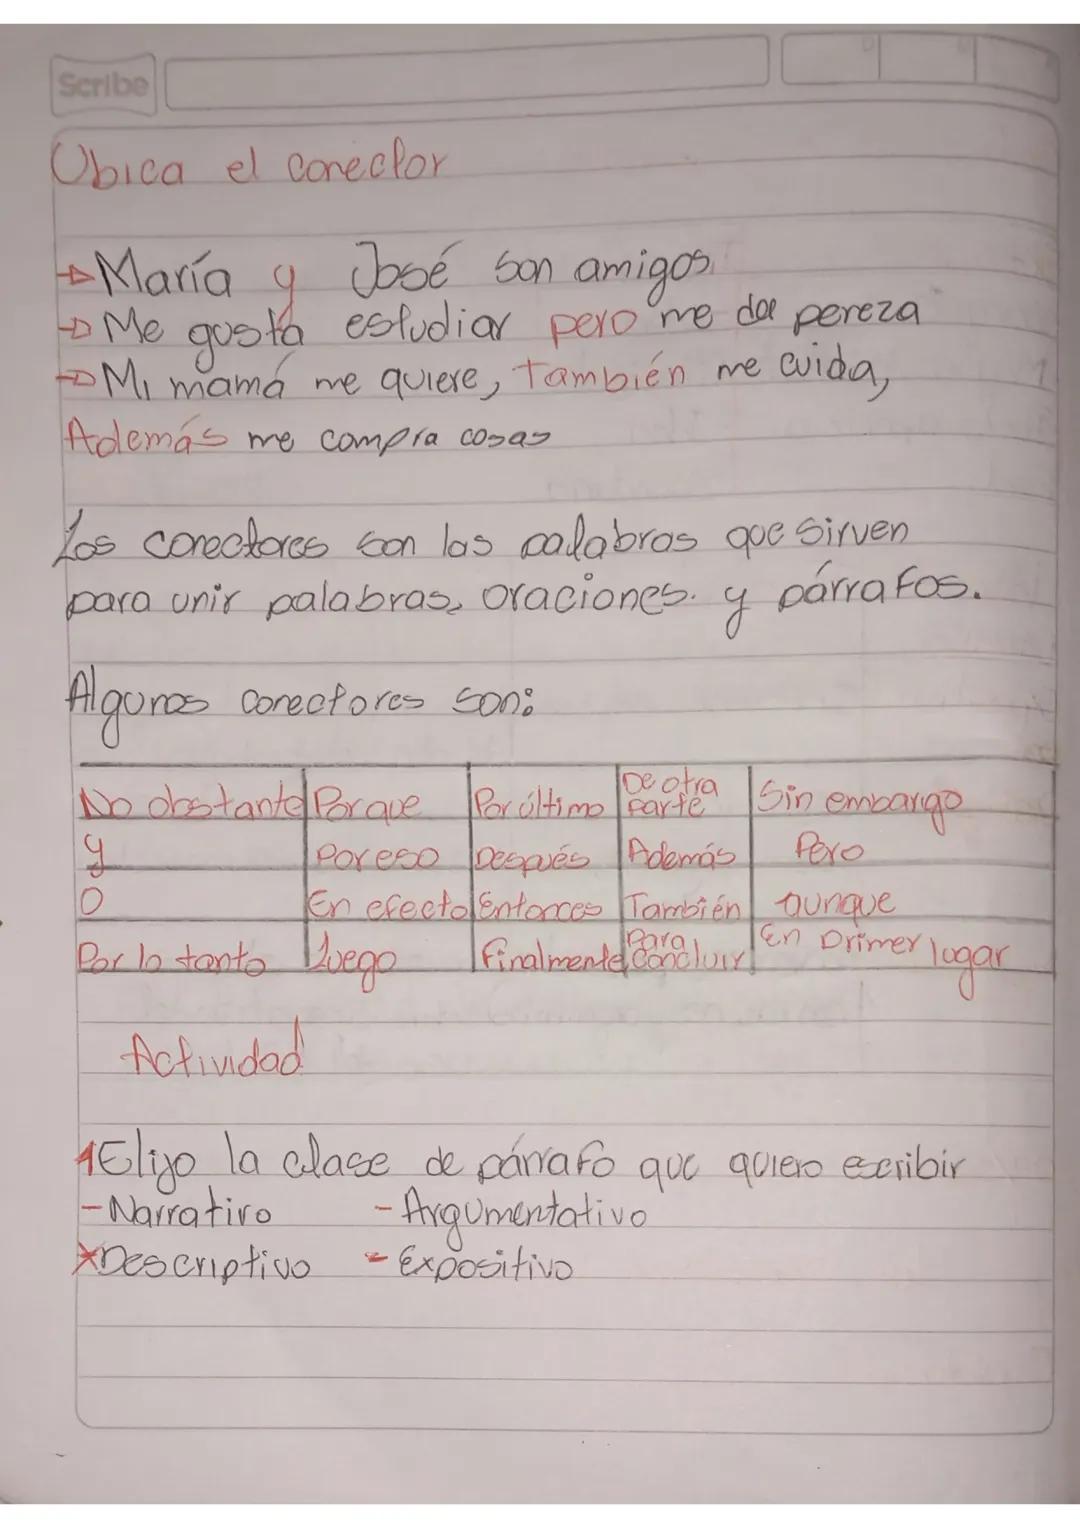 Scribe
Ubica el conector
María y José son amigos.
Me gusta estudiar pero me da pereza
Mi mamá me quiere, También me cuida,
Además me compra cosas
Los conectores son las palabras que sirven
para unir palabras, oraciones. y párrafos.
Algunos conectores son:
No obstante Porque Por último De otra parte Sin embargo
y Por eso Después Además Pero
O En efecto Entonces También aunque
Por lo tanto Luego finalmente Para concluir En primer lugar
Actividad
1 Elijo la clase de párrafo que quiero escribir
- Narrativo - Argumentativo
x Descriptivo - Expositivo